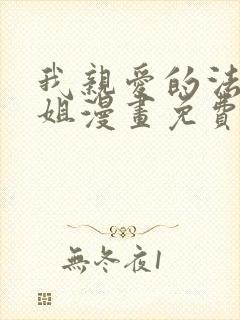 我親愛的法
姐漫畫免費
無冬夜1